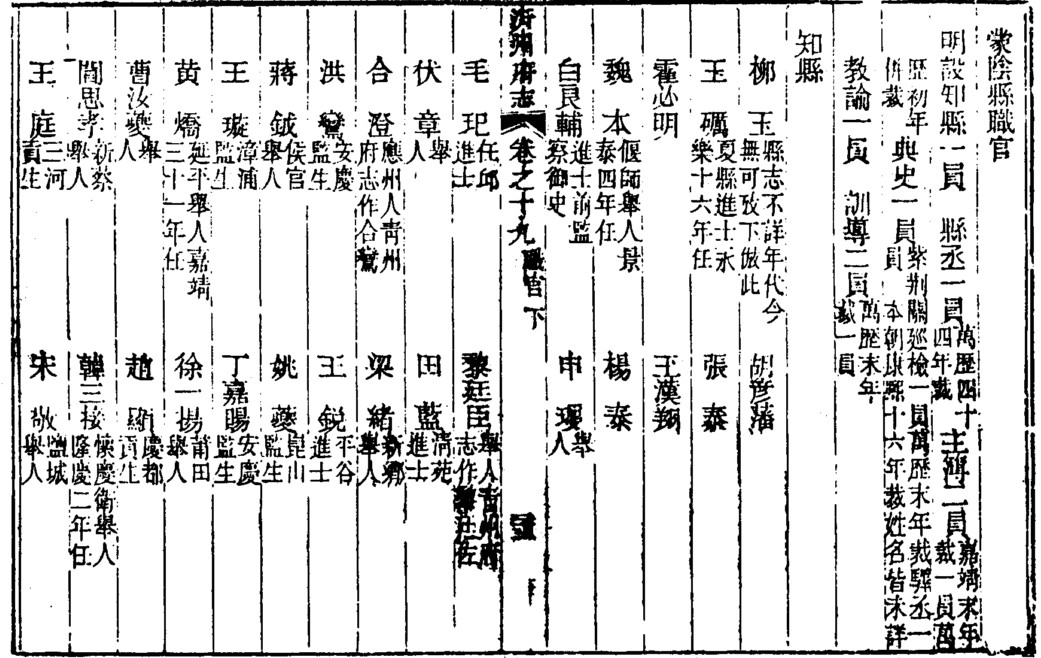 蒙陰縣職官
明設知縣一員 縣丞一員 萬歷四十四年裁 主簿二員 嘉靖末年裁一員萬
歷初年併裁 典史一員 紫荆關巡檢一員萬歷末年裁驛丞一員本朝康熙十六年裁姓名皆未詳
教諭一員 訓導二員 萬歷末年裁一員
知縣
柳玉 縣志不詳年代今無可攷下倣此 胡彥藩
玉礪 夏縣進士永樂十六年任 張泰
霍必明 王漢翔
魏本 偃師舉人景泰四年任 楊泰
白良輔 進士前監察御史 申理 舉人
沂州府志 卷之十九 職官下
毛玘 任邱進士 黎廷臣 舉人青州府志作
伏章 舉人 田藍 清苑進士
合澄 應州人青州府志作合鸞 梁緒 新鄉舉人
洪鸞 安慶監生 王銳 平谷進士
蔣鉞 侯官舉人 姚夔 崑山監生
王璇 漳浦監生 丁嘉暘 安慶監生
黃燆 延平舉人嘉靖三十一年任 徐一揚 莆田舉人
曹汝夔 舉人 趙顯 慶都貢生
閻思孝 新蔡舉人 韓三接 懷慶衛舉人隆慶二年任
王庭 三河貢生 宋敬 鹽城舉人